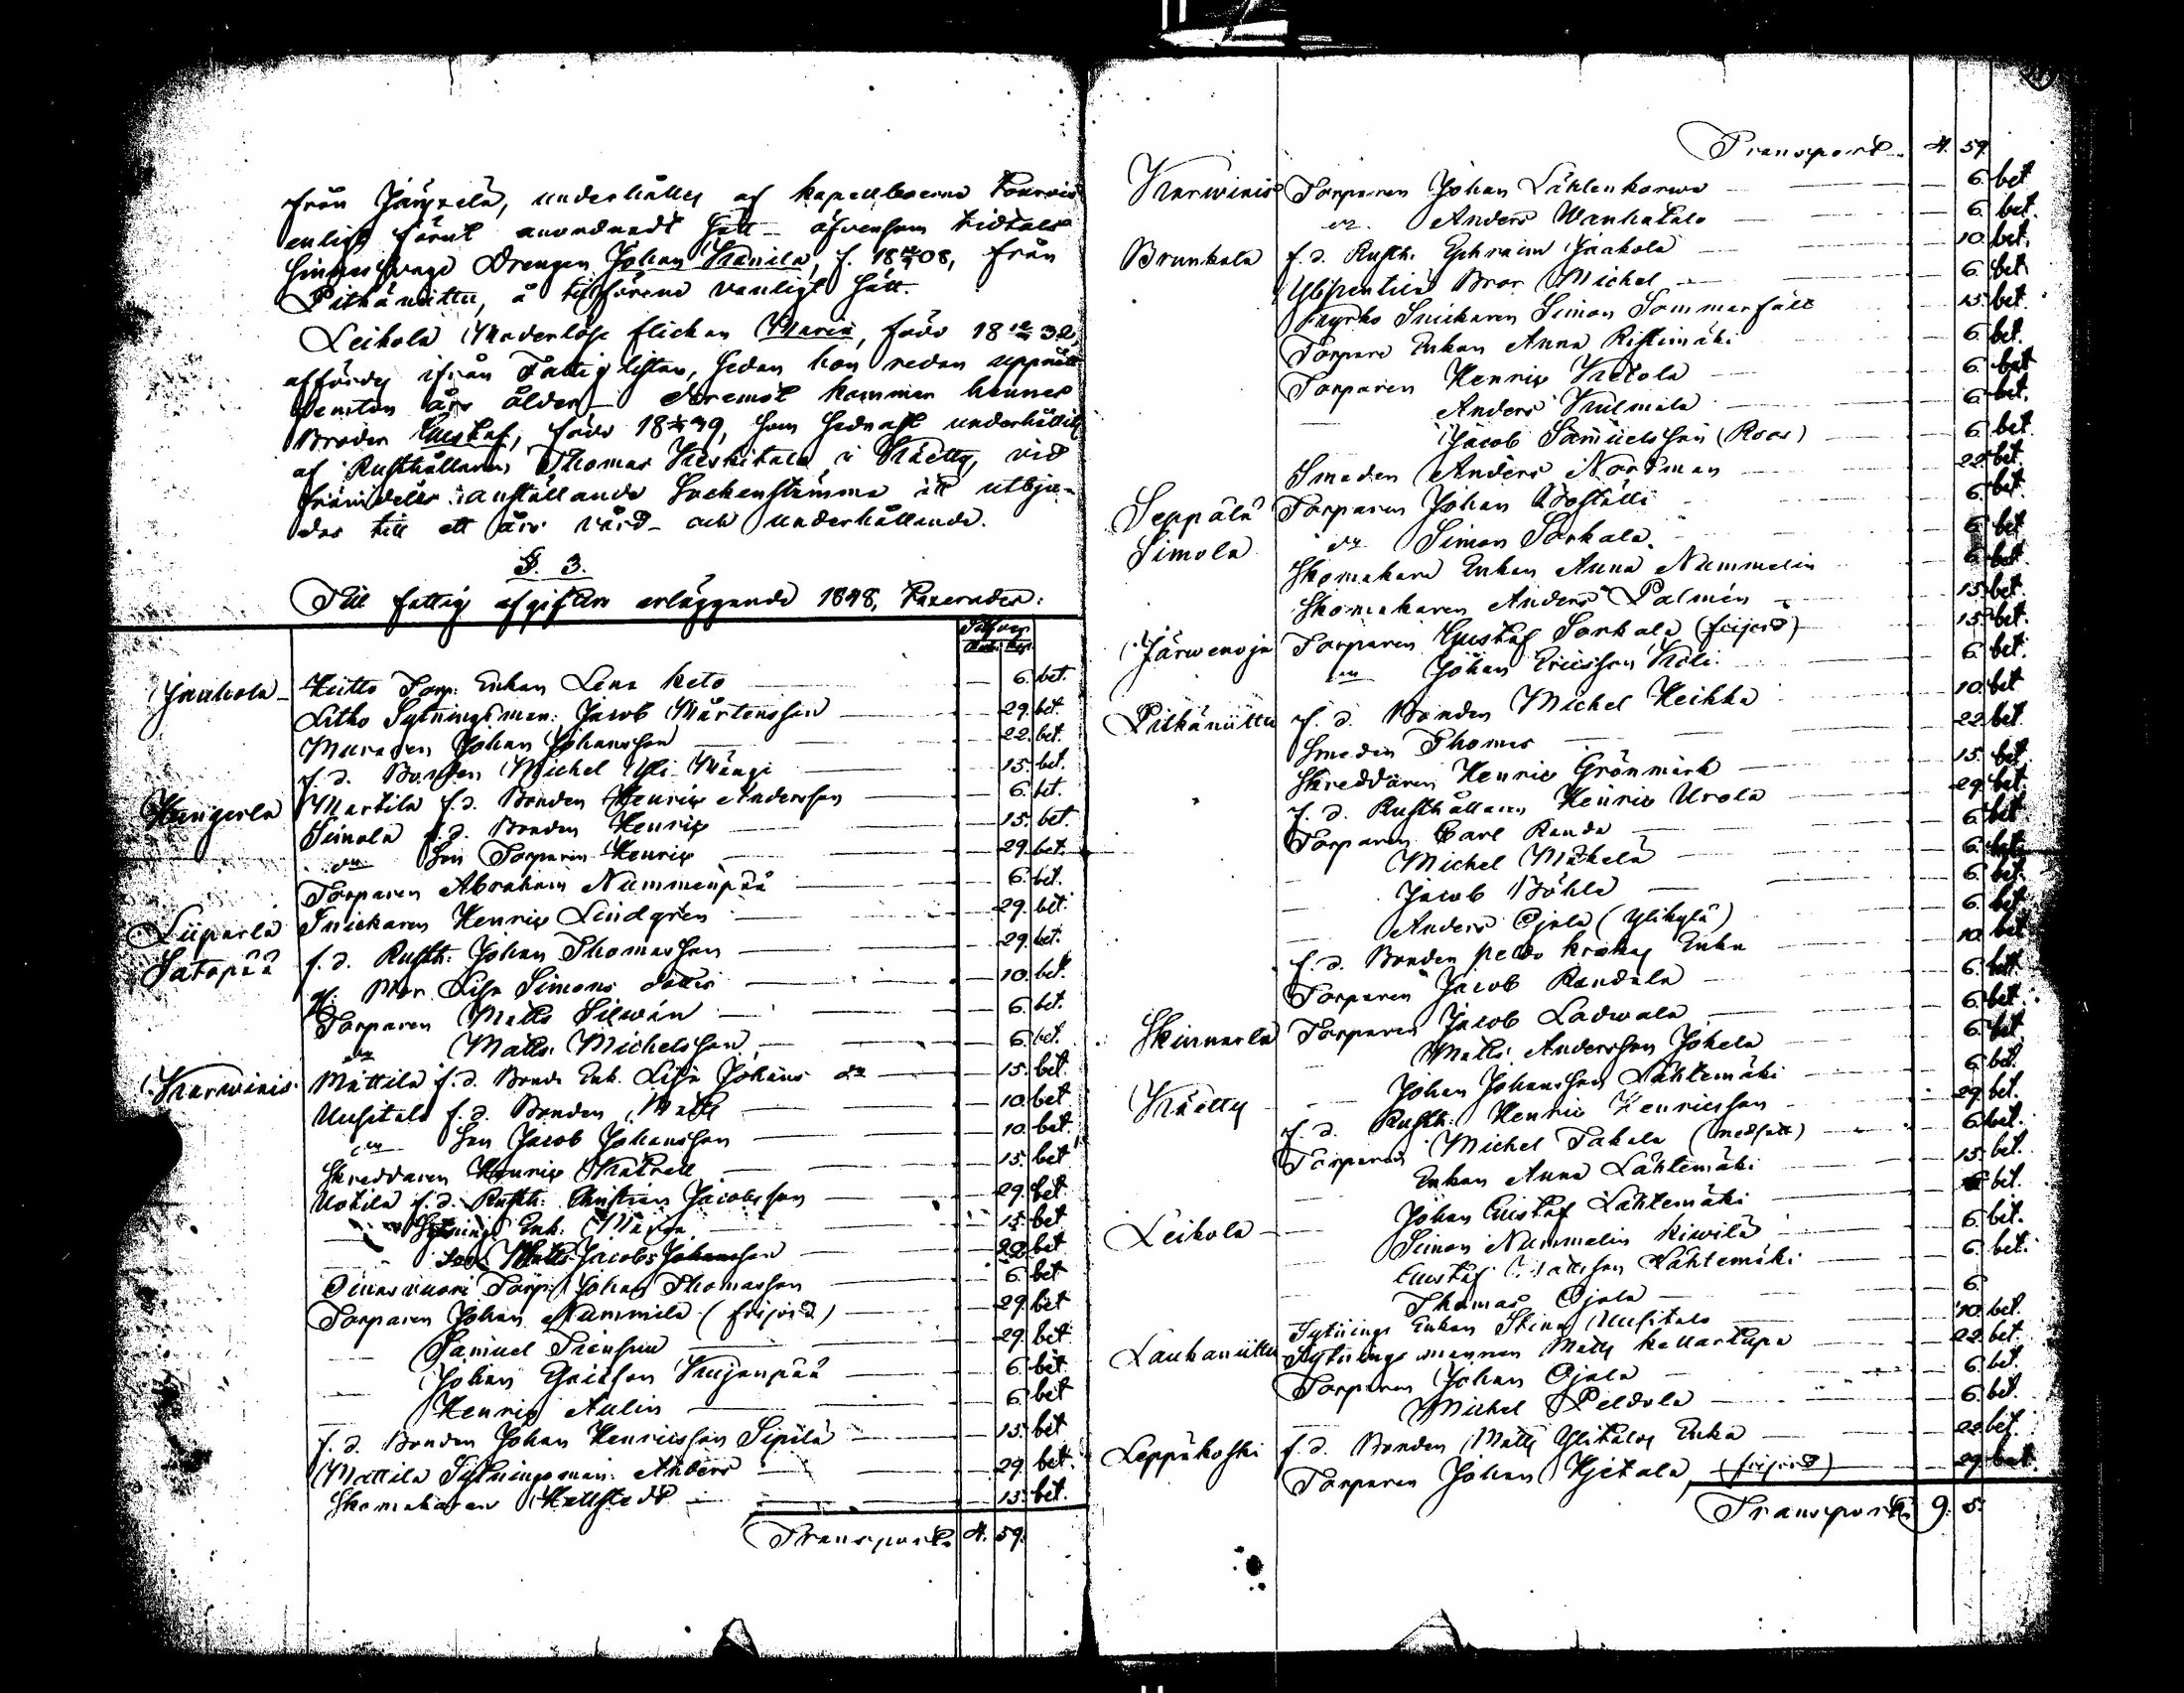 från Järvelä, underhålles af kapellboerne
enligt förut anordnadt sätt — äfvensom
sinnessvage Drengen Johan Kanila, f. 18 08, från
Pitkäniittu, å tillförene vanligt sätt.
Leikola Moderlöse flickan Maria, född 18 32,
afföres ifrån Fattig listan, sedan hon redan uppnått
femton års ålder — deremot kommer hennes
Broder Gustaf, född 18 39, som sednast underhållits
af Rusthållaren Thomas Keskitalo i Kåetty, vid
framdeles anställande Sockenstämma att utbju-
das till ett års vård och underhållande.
§. 3.
Till fattig afgifters erläggande 1848, taxerades:
Jaakola — Torp. Enkan Lena Keto 6. bet.
Litko Sytningsman: Jacob Mårtensson 29. bet.
Muraren Johan Johansson 22. bet.
f. d. Bonden Michel Yli 15. bet.
Hungerla Martila f. d. Bonden Henric Andersson 6. bet.
Simola f. d. Bonden Henric 15. bet.
Son Torparen Henric 29. bet.
Torparen Abraham Nummenpää 6. bet.
Liiparla Snickaren Henric Lindgren 29. bet.
Satopää f. d. Rusth: Johan Thomasson 29. bet.
Mor Lisa Simons dotter 10. bet.
Torparen Matts Silwán 6. bet.
Matts Michelsson 6. bet.
Karwinis Mattila f. d. Bonde Enk. Lisa Johans dr 15. bet.
Uusitalo f. d. Bonden Matts 10. bet.
Son Jacob Johansson 10. bet.
Skreddaren Henric 15. bet
Uotila f. d. Rusth: Christian Jacobsson 29. bet
Sytnings Enk. Maria 15. bet
Matts Jacobs 22. bet
Torp: Johan Thomasson 6. bet
Torparen Johan Nummila (frijord) 29. bet
Samuel 29. bet
Johan Ericsson Kujanpää 6. bet
Henric Aulin 6. bet
f. d. Bonden Johan Henricsson Sipilä 15. bet
Mattila Sytningsman: Anders 29. bet.
Skomakaren Hellstedt 15. bet.
Transport. 4. 59.
Transport 4. 59.
Karwinis Torparen Johan Lähtenkorwa 6. bet
Anders Wanhatalo 6. bet.
Brunkala f. d. Rusth: Ephraim Jaakola 10. bet.
Ylipentilä Bror Michel 6. bet
Snickaren Simon Sommarfält 15. bet.
Torpare Enkan Anna Ristimäki 6. bet.
Torparen Henric Ketola 6. bet
Anders Kulmala 6. bet.
Jacob Samuelsson (Roos) 6. bet
Smeden Anders Nordman 22. bet
Seppälä Torparen Johan 6. bet
Simola Simon Sorkala 6. bet
Skomakare Enkan Anna Nummelin 6. bet.
Skomakaren Anders Palmén 15. bet
Järwenoja Torparen Gustaf Sorkala (frijord) 15. bet.
Johan Ericsson 6. bet.
Pitkäniittu f. d. Bonden Michel Heikka 10. bet
Smeden Thomas 22. bet
Skreddaren Henric Grönmark 15. bet
f. d. Rusthållaren Henric Urola 29. bet
Torparen Carl Randa 6. bet
Michel Mäkelä 6. bet.
Jacob Böhle 6. bet.
Anders Ojala (Ylikylä) 6. bet
f. d. Bonden Enka 10. bet
Torparen Jacob Randala 6. bet
Skinnarla Torparen Jacob Ladwala 6. bet.
Matts Andersson Jokela 6. bet
Johan Johansson Lähtemäki 6. bet.
Kåetty f. d. Rusth: Henric Henricsson 29. bet.
Torparen Michel Takala 6. bet.
Enkan Anna Lähtemäki 15. bet.
Johan Gustaf Lähtemäki 6. bet.
Leikola — Simon Nummelin Kiwilä 6. bet.
Gustaf Mattsson Lähtemäki 6. bet.
Thomas Ojala 6.
Sytnings Enkan Stina Uusitalo 10. bet.
Laukaniittu Sytnings mannen Matts Kellartupa 22. bet.
Torparen Johan Ojala 6. bet.
Michel Peldola 6. bet.
Leppäkoski f. d. Bonden Matts Ylitalos Enka 22. bet.
Torparen Johan Hjetala (frijord) 29. bet.
Transport 9. 5.